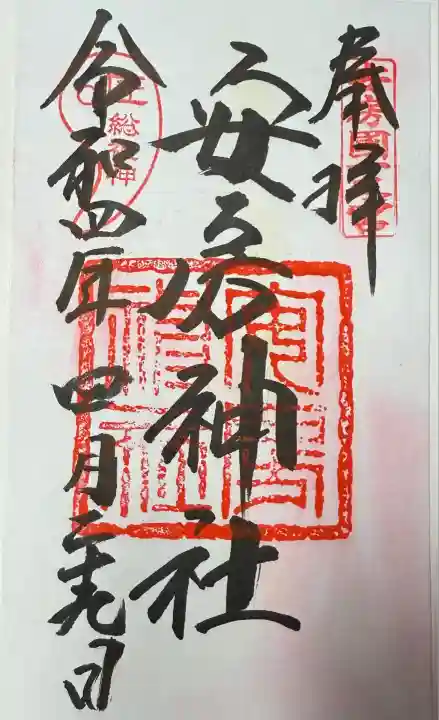 奉拝
安房國一宮
安房神社
令和四年四月二十九日